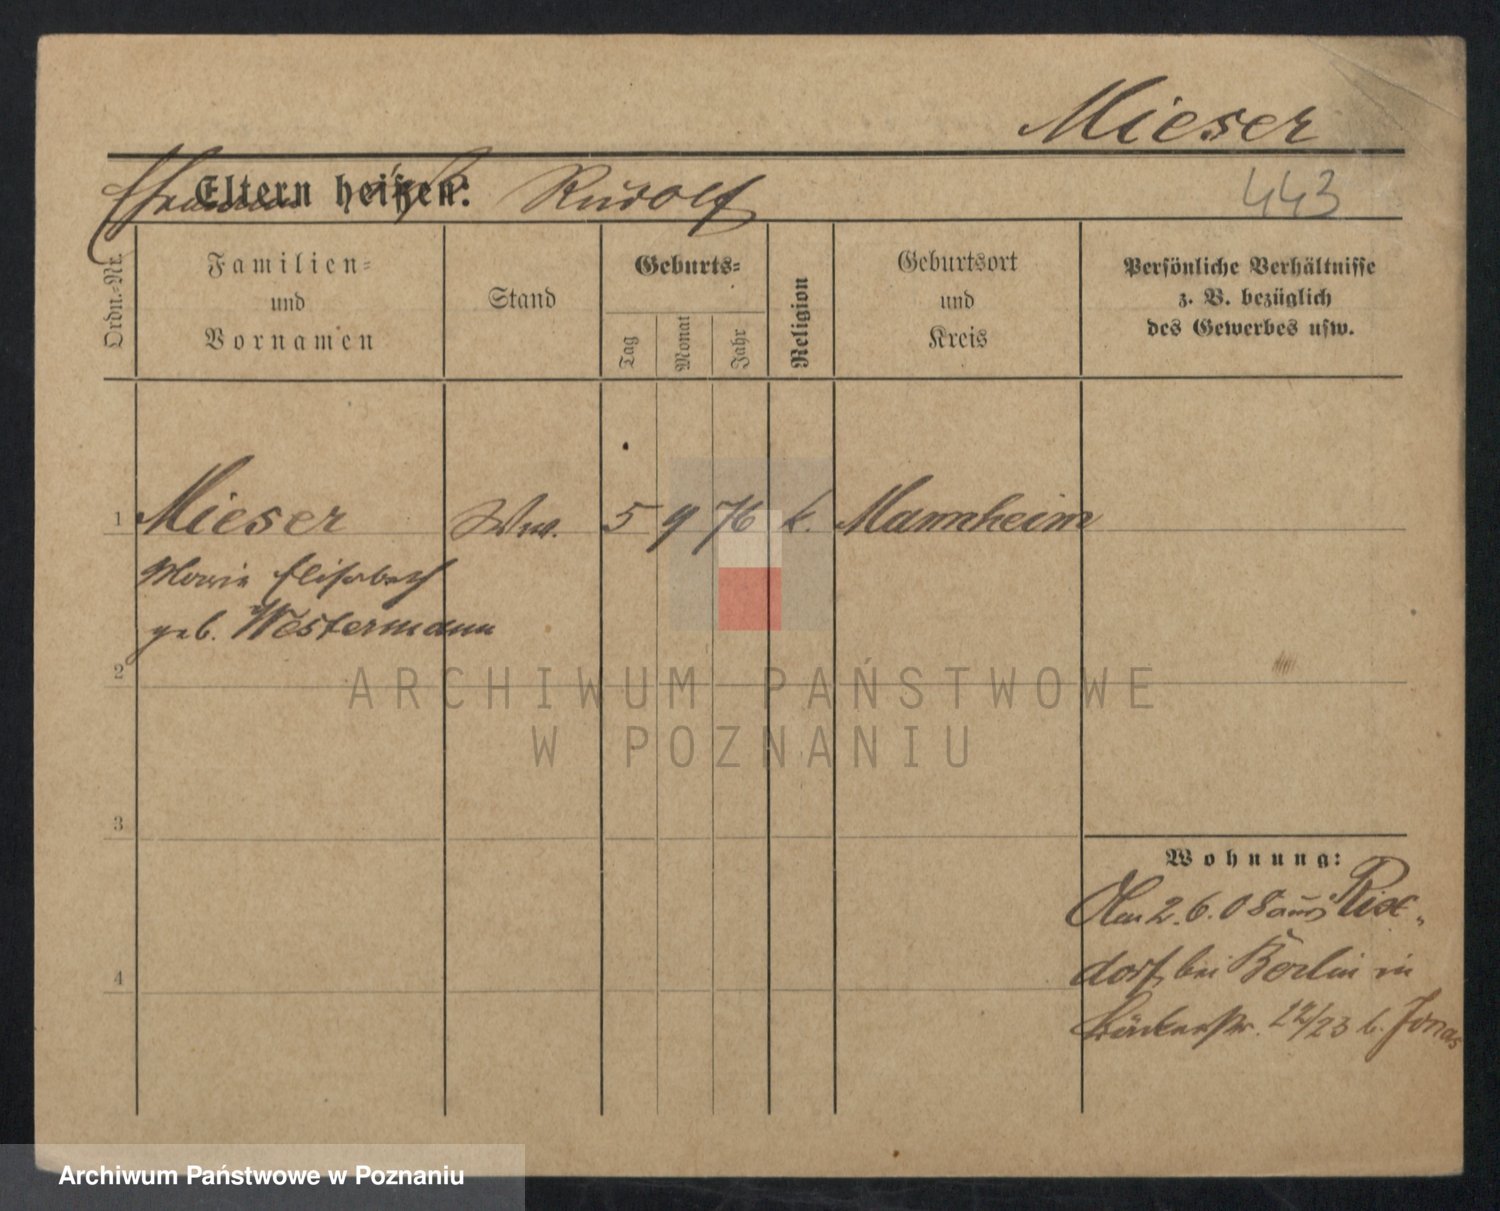 Mieser
Eltern heißen: Rudolf
443
Ordn.-Nr.
Familien-
und
Vornamen
Stand
Geburts-
Tag
Monat
Jahr
Religion
Geburtsort
und
Kreis
Persönliche Verhältnisse
z. B. bezüglich
des Gewerbes usw.
1 Mieser Ww. 5 9 76 k. Mannheim
Marie Elisabeth
geb. Westermann
2
ARCHIWUM PAŃSTWOWE
W POZNANIU
3
Wohnung:
Am 2.6.08 aus Rix-
dorf bei Berlin in
4
Bäckerstr. 22/23 b. Jonas
Archiwum Państwowe w Poznaniu